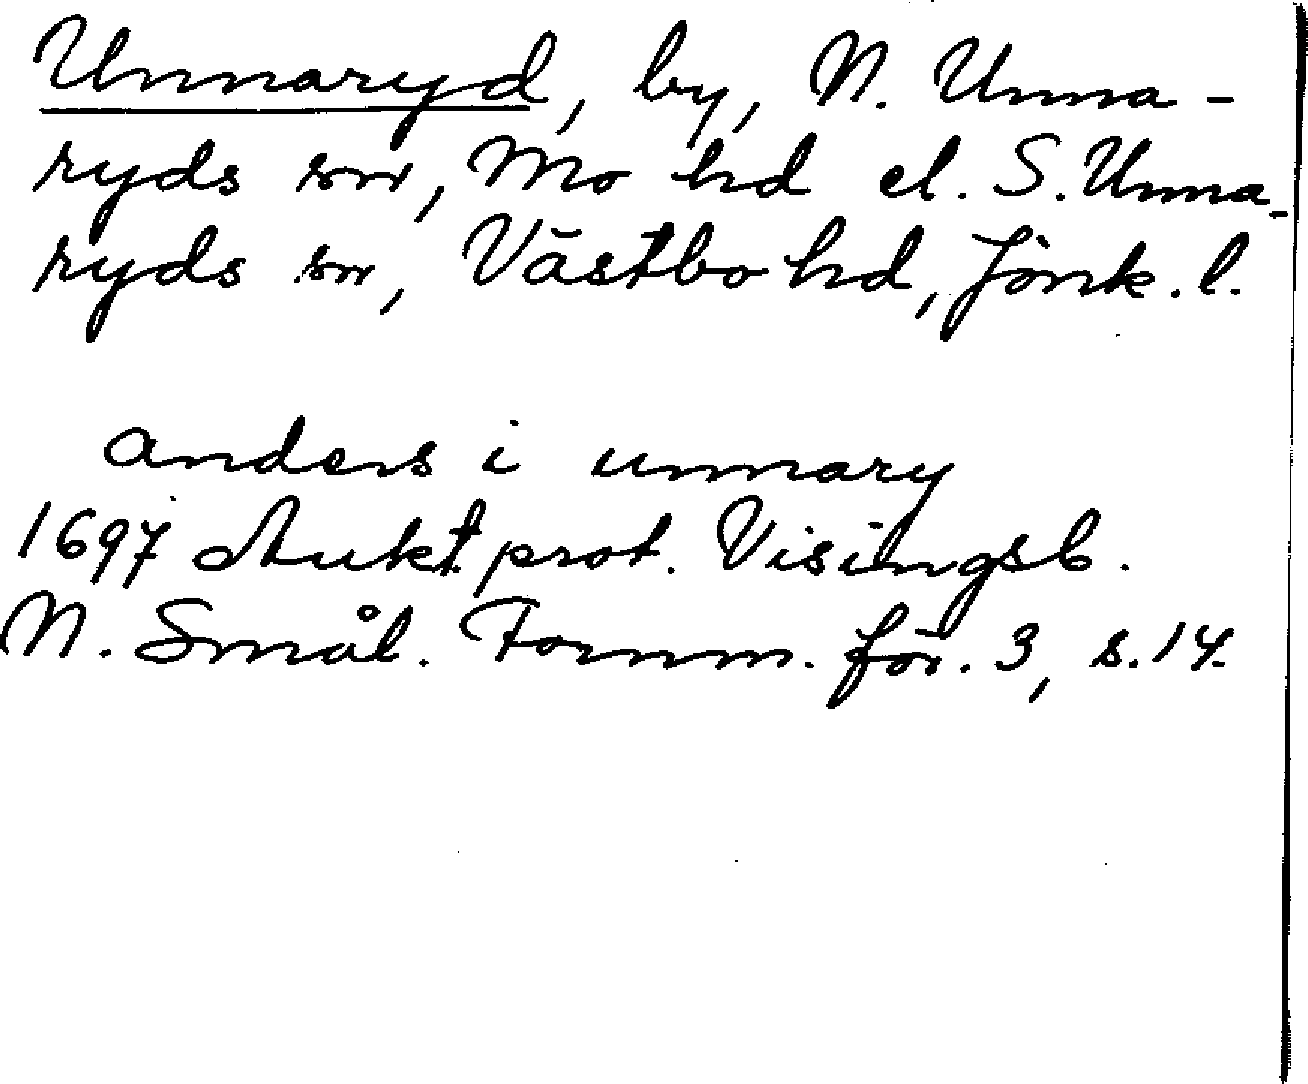 Unnaryd, by, N. Unna-
ryds sn, Mo hd el. S. Unna-
ryds sn, Västbo hd, Jönk. l.
anders i unnary
1697 Aukt. prot. Visingsb.
N. Smål. Fornm. för. 3, s. 14.